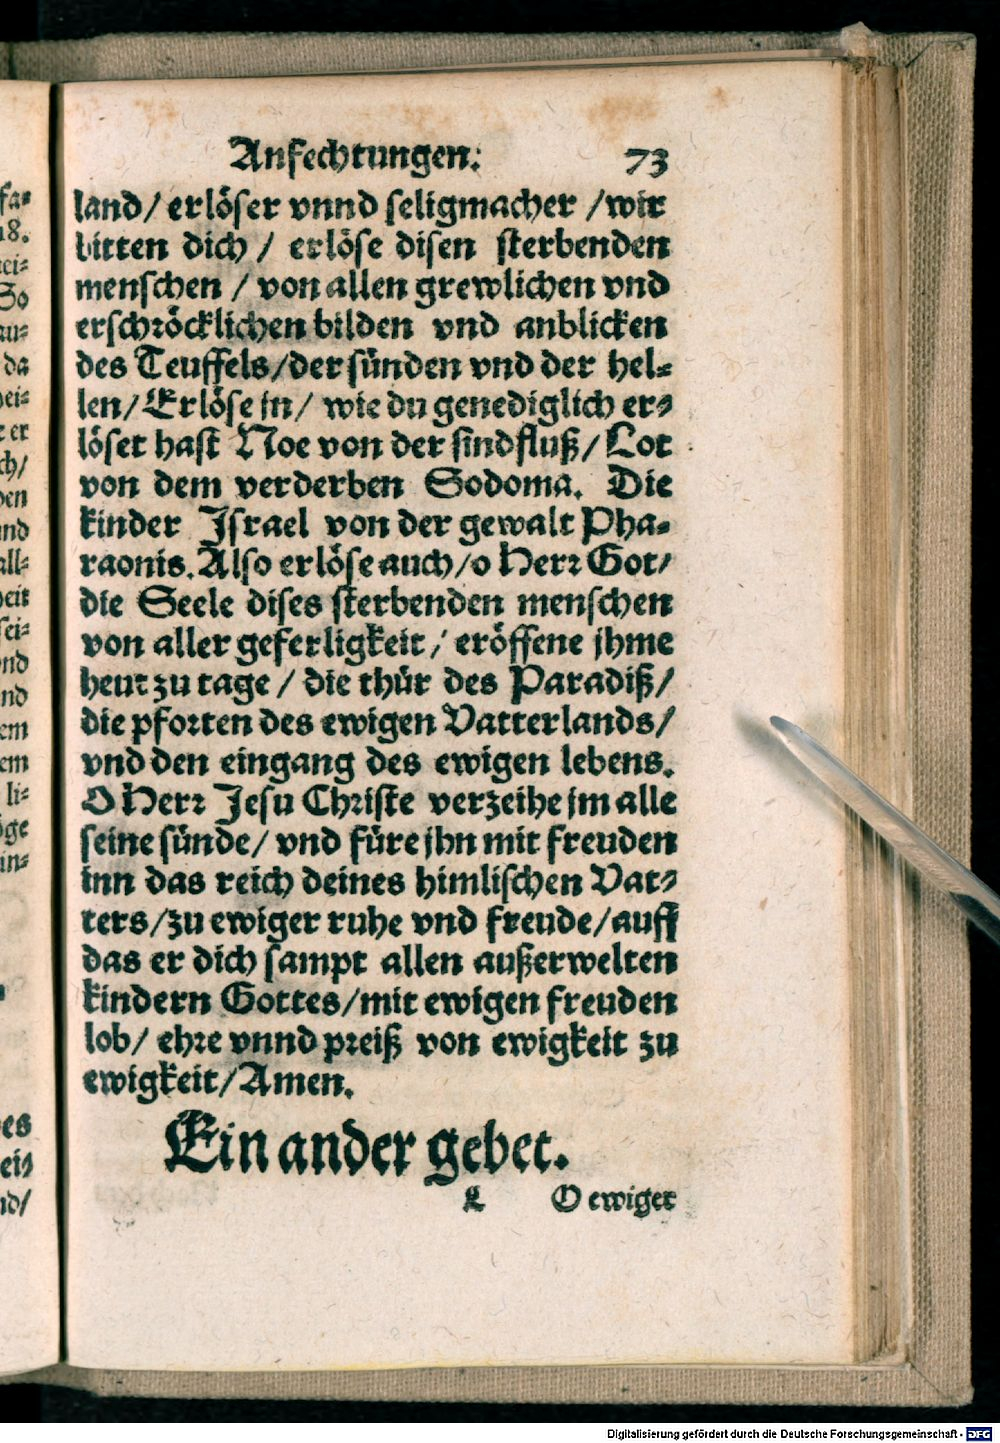 Anfechtungen. 73
land/ erlöser vnnd seligmacher /wir
bitten dich / erlöse disen sterbenden
menschen / von allen grewlichen vnd
erschröcklichen bilden vnd anblicken
des Teuffels/der sünden vnd der hel-
len/Erlöse jn/ wie du genediglich er-
löset hast Noe von der sindfluß/Lot
von dem verderben Sodoma. Die
kinder Israel von der gewalt Pha-
raonis. Also erlöse auch/o Herr Got/
die Seele dises sterbenden menschen
von aller geferligkeit/ eröffene jhme
heut zu tage / die thür des Paradiß/
die pforten des ewigen Vatterlands/
vnd den eingang des ewigen lebens.
O Herr Jesu Christe verzeihe jm alle
seine sünde/ vnd füre jhn mit freuden
inn das reich deines himlischen Vat-
ters/zu ewiger ruhe vnd freude/auff
das er dich sampt allen außerwelten
kindern Gottes/mit ewigen freuden
lob/ ehre vnnd preiß von ewigkeit zu
ewigkeit/Amen.
Ein ander gebet.
L O ewiger
Digitalisierung gefördert durch die Deutsche Forschungsgemeinschaft - DFG